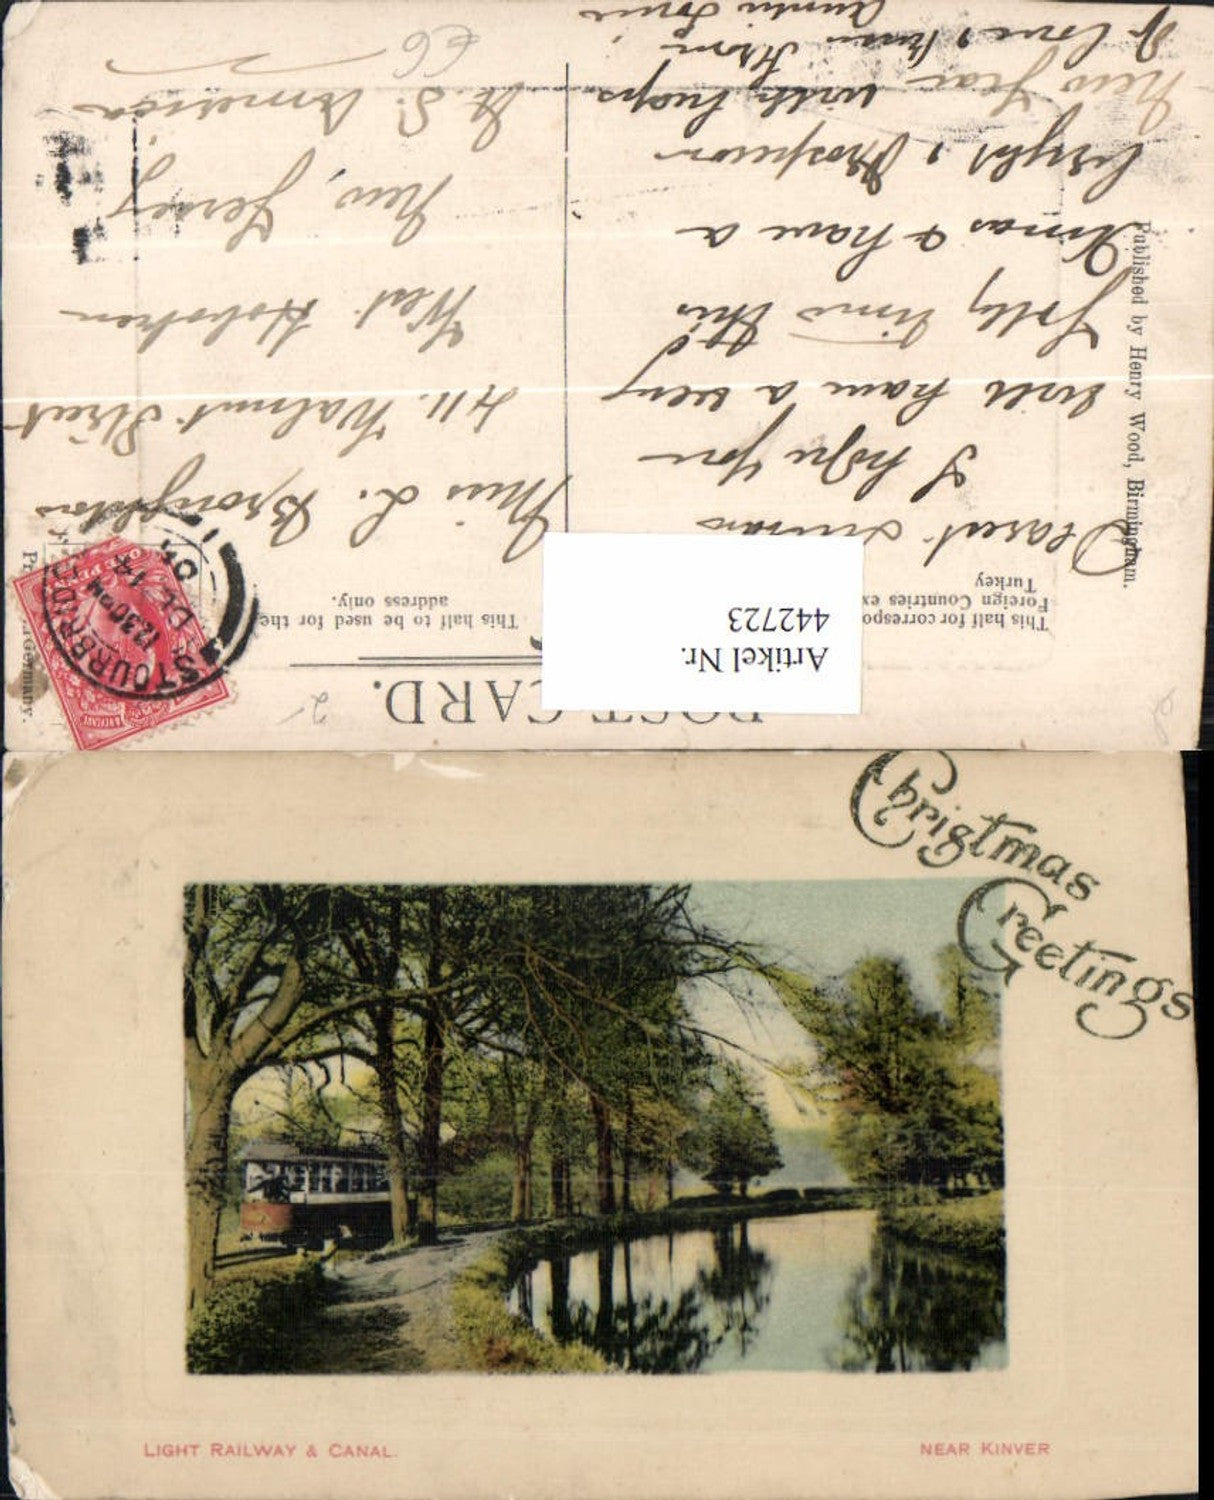 POST CARD.
This half for correspo
Foreign Countries ex
Turkey
This half to be used for the
address only.
Artikel Nr.
442723
STOURBRIDGE
12.30PM
DE 14
Dearest Susan
I hope you
will have a very
Jolly time this
Xmas & have a
bright & Prosperous
New Year with heaps
of love & kisses from
Auntie
Miss L. Broughton
411. Walnut Street
West Hoboken
New Jersey
U.S. America
66
Published by Henry Wood, Birmingham.
Germany.
Christmas
Greetings
LIGHT RAILWAY & CANAL. NEAR KINVER